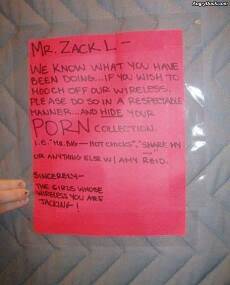 MR. ZACK L-
WE KNOW WHAT YOU HAVE
BEEN DOING... IF YOU WISH TO
MOOCH OFF OUR WIRELESS,
PLEASE DO SO IN A RESPECTABLE
MANNER...AND HIDE YOUR
PORN COLLECTION.
I.E. "MR. BIG - HOT CHICKS", "SHARE MY
OR ANYTHING ELSE W/ AMY REID.
SINCERELY-
THE GIRLS WHOSE
WIRELESS YOU ARE
JACKING!